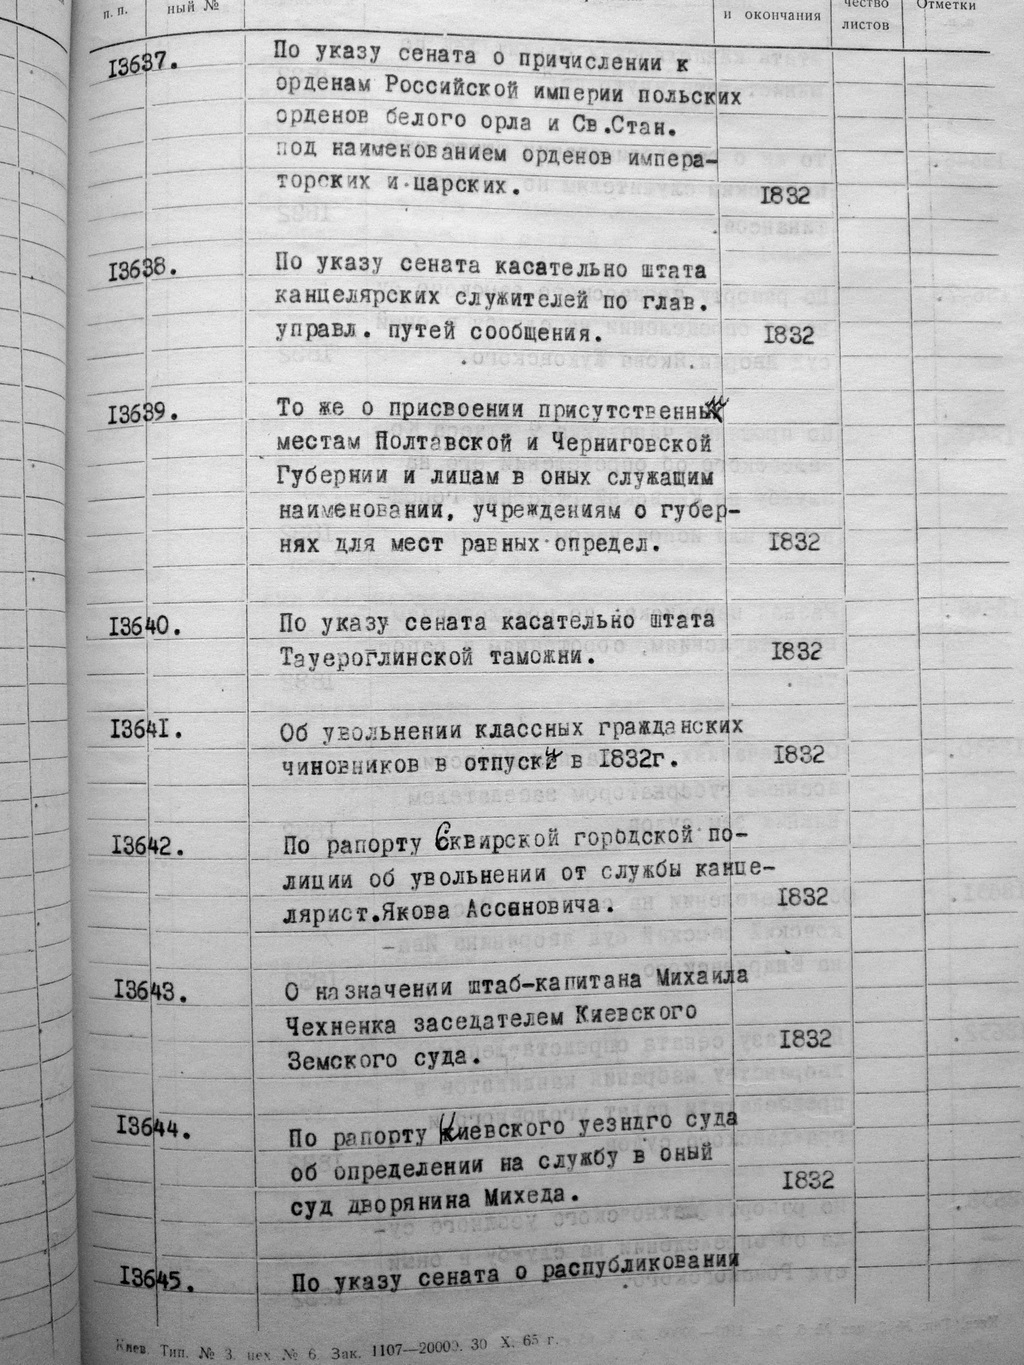 п. п. ный № и окончания чество листов Отметки
13637. По указу сената о причислении к
орденам Российской империи польских
орденов белого орла и Св.Стан.
под наименованием орденов импера-
торских и царских. 1832
13638. По указу сената касательно штата
канцелярских служителей по глав.
управл. путей сообщения. 1832
13639. То же о присвоении присутственны
местам Полтавской и Черниговской
Губернии и лицам в оных служащим
наименовании, учреждениям о губер-
нях для мест равных определ. 1832
13640. По указу сената касательно штата
Тауероглинской таможни. 1832
13641. Об увольнении классных гражданских
чиновников в отпуск в 1832г. 1832
13642. По рапорту Сквирской городской по-
лиции об увольнении от службы канце-
лярист.Якова Ассановича. 1832
13643. О назначении штаб-капитана Михаила
Чехненка заседателем Киевского
Земского суда. 1832
13644. По рапорту Киевского уезндго суда
об определении на службу в оный
суд дворянина Михеда. 1832
13645. По указу сената о распубликовании
Киев. Тип. № 3, цех № 6. Зак. 1107—20000. 30 X. 65 г.